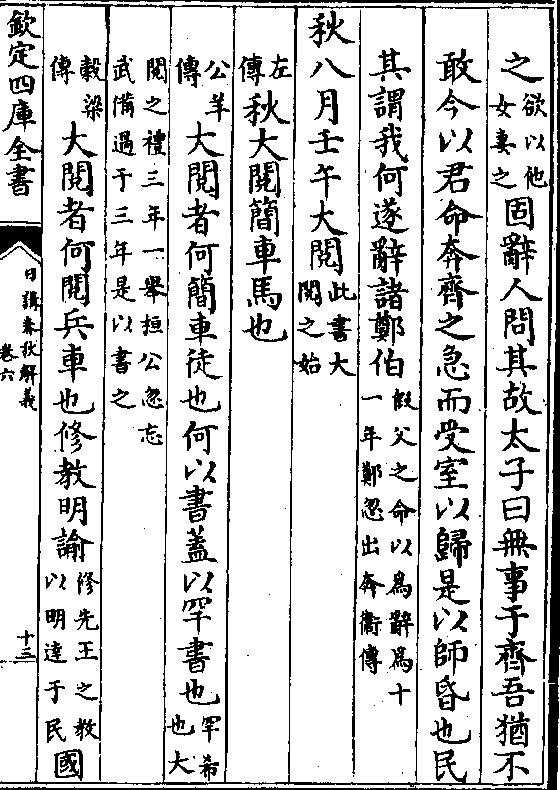 之欲以他女妻之固辭人問其故太子曰無事于齊吾猶不
敢今以君命奔齊之急而受室以歸是以師昏也民
其謂我何遂辭諸鄭伯假父之命以爲辭爲十一年鄭忽出奔衞傳
秋八月壬午大閱此書大閱之始
左傳秋大閱簡車馬也
公羊傳大閱者何簡車徒也何以書蓋以罕書也罕希也大
閱之禮三年一舉桓公忽忘武備過于三年是以書之
穀梁傳大閱者何閱兵車也修教明諭修先王之教以明達于民國
欽定四庫全書
日講春秋解義
卷六
十三